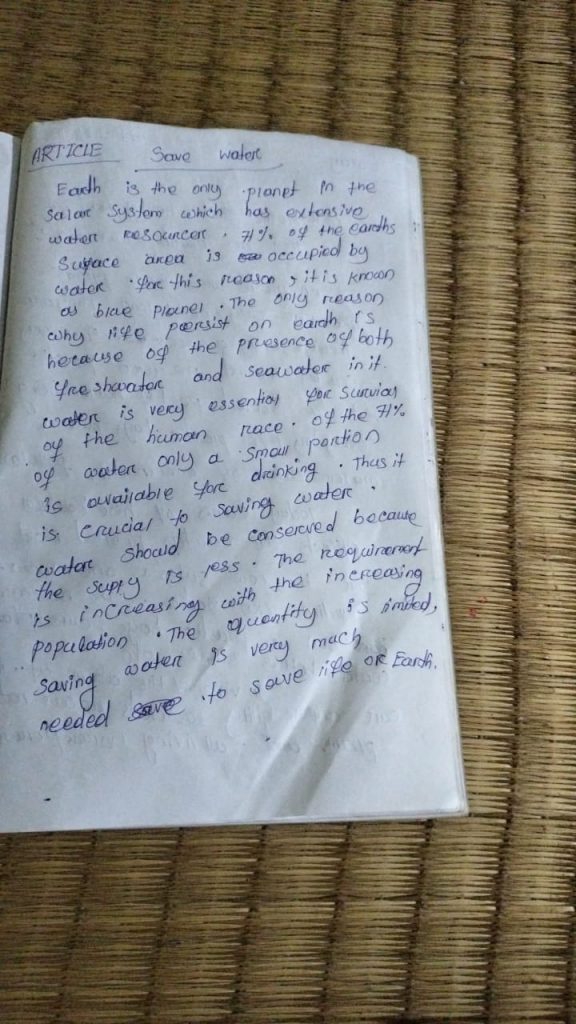 ARTICLE Save water
Earth is the only planet in the
Salar System which has extensive
water resources. 71% of the earths
Surface area is occupied by
water. for this reason, it is known
as blue planel. The only reason
why life persist on earth is
because of the presence of both
freshwater and seawater in it.
water is very essential for survial
of the human race. of the 71%
of water only a small portion
is available for drinking. Thus it
is crucial to saving water.
water should be conserved because
the supply is less. The requirement
is increasing with the increasing
population. The quantity is limited,
Saving water is very much
needed to save life or Earth.